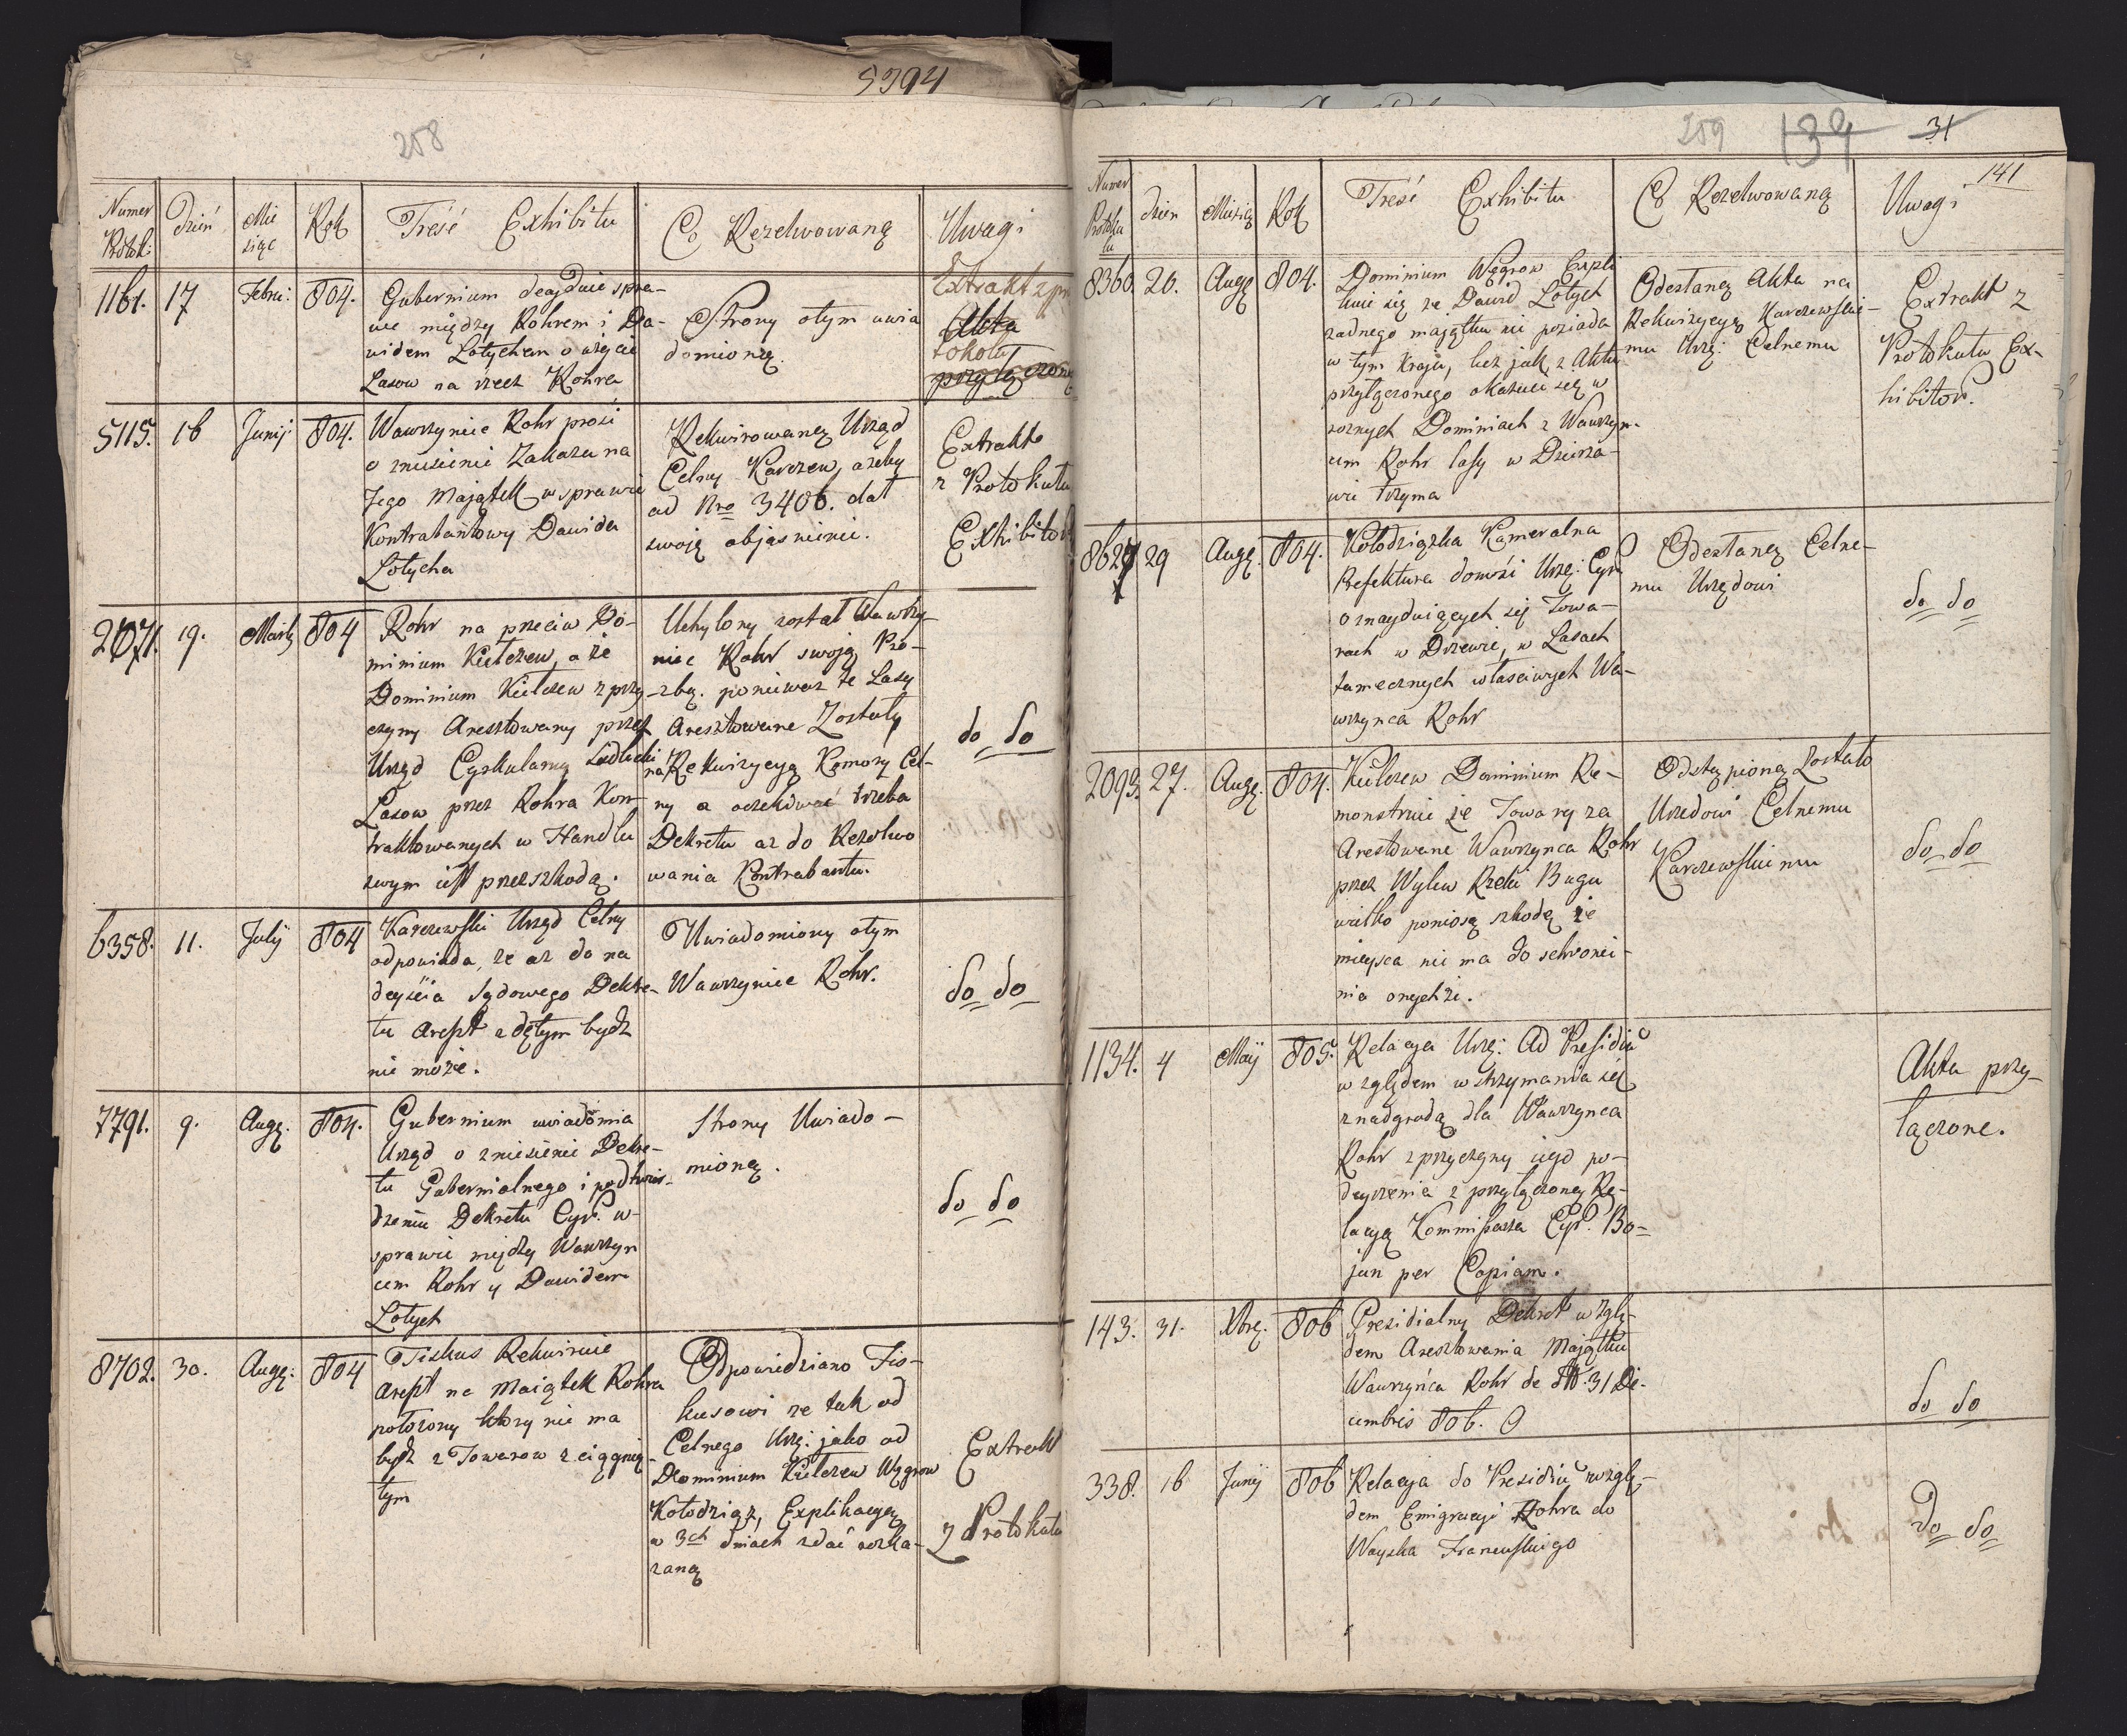 5394
258
Numer Protok:
Dzień
Mie
siąc
Rok
Treść Exhibitu
Co Rezolwowaną
Uwagi
1161. 17 Febru: 804.
Gubernium decyduie spra-
wę między Rohrem i Da-
widem Lotychem o wzięcie
Lasow na rzecz Rohra
Strony otym uwia
domioną.
Extrakt z pro
Akta
tokołu
przyłączone
5115. 16 Junij 804.
Wawrzyniec Rohr prosi
o zniesienie Zakazu na
Jego Majątek w sprawie
Kontrabantowy Dawida
Lotycha
Rekwirowaną Urząd
Celny Karczew, ażeby
ad Nro 3406. dał
swoją objasnienie.
Extrakt
z Protokułu
Exhibitow
2071. 19. Martij 804
Rohr na przeciw Do-
minium Kiełczew, a że
Dominium Kiełczew z przy-
czyny Aresztowany przez
Urząd Cyrkularny Siedlecki
Lasow przez Rohra Kon-
traktowanych w Handlu
swym iest przeszkodą.
Uchylony został Wawrzy-
niec Rohr swoją Pro-
zbą. ponieważ te Lasy
Aresztowane Zostały
na Rekwizycyą Komory Cel-
ny a oczekiwać trzeba
Dekretu aż do Rezolwo
wania Kontrabantu.
do do
6358. 11. Julij 804
Karczewski Urząd Celny
odpowiada, że aż do na
deyścia Sądowego Dekre-
tu areszt odętym bydz
nie może.
Uwiadomiony otym
Wawrzyniec Rohr.
do do
7791. 9. Aug. 804.
Gubernium uwiadomia
Urząd o zniesienie Dekre-
tu Gubernialnego i podtwier-
dzeniu Dekretu Cyr. w-
sprawie między Wawrzyn
cem Rohr y Dawidem
Lotych
Strony Uwiado-
mioną.
do do
8702. 30. Aug: 804
Fiskus Rekwiruie
areszt na Maiątek Rohra
położony ktory nie ma
bydz z Towarow zciągnię-
tym
Odpowiedziano Fis-
kusowi ze tak od
Celnego Urzę: jako od
Dominium Kiełczew Węgrow
Kołodziąz, Explikacyą
w 3ch dniach zdać roska-
zaną
Extrakt
z Protokułu
259 139 31
141
Numer
Protoku
łu
dzien
Miesiąc
Rok
Treść Exhibitu
Co Rezolwowaną
Uwagi
8360. 20. Aug 804.
Dominium Węgrow Expli
kuie się ze Dawid Lotych
zadnego majątku nie posiada
w tym Kraju, lecz jak z Aktu
przyłączonego okazuie się w
roznych Dominiach z Wawrzyn-
cem Rohr lasy w Dzierza-
wie trzyma
Odesłaną Akta na
Rekwizycyą Karczewskie-
mu Urzę: Celnemu
Extrakt z
Protokułu Ex-
hibitow.
8627 29 Aug. 804.
Kołodziązka Kameralna
Prefektura donosi Urzę: Cyr
o znayduiących się Towa-
rach w Drzewie, w Lasach
tamecznych własciwych Wa-
wrzynca Rohr
Odesłaną Celne-
mu Urzędowi
do do
2093. 27. Aug. 804.
Kiełczew Dominium Re-
monstruie że Towary za
Arestowane Wawrzynca Rohr
przez Wylew Rzeki Bugu
wielko poniosą szkodę że
mieysca nie ma do schronie-
nia onychże.
Odstąpioną Zostało
Urzedowi Celnemu
Karczewskiemu
do do
1134. 4 Maij 805.
Relacya Urzę: Ad Presidiu
względem wstrzymania się
z nadgrodą dla Wawrzynca
Rohr z przyczyny iego po-
deyrzenia z przyłączoney Re-
lacyą Kommissarza Cyr. Bo-
jun per Copiam.
Akta przy-
łączone.
143. 31. Xbrę. 806
Prezidialny Dekret wzglę-
dem Aresztowania Majątku
Wawrzyńca Rohr de dto. 31 De-
cembris 806.
do do
338. 16 Junij 806
Relacya do Presidiu wzglę-
dem Emigracyi Rohra do
Woyska Francuskiego
Do do